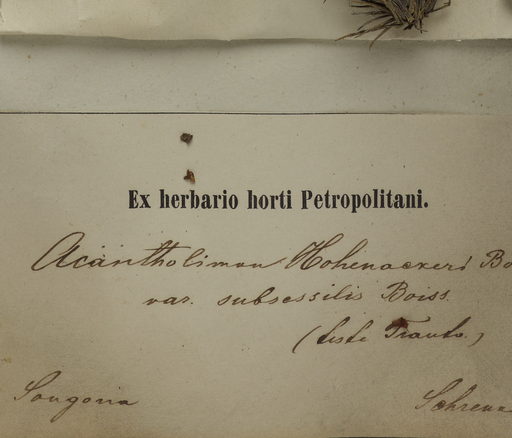 Ex herbario horti Petropolitani.
Acantholimon Hohenackeri Bo
var. subsessilis Boiss.
(teste Trautv.)
Songoria
Schrenk